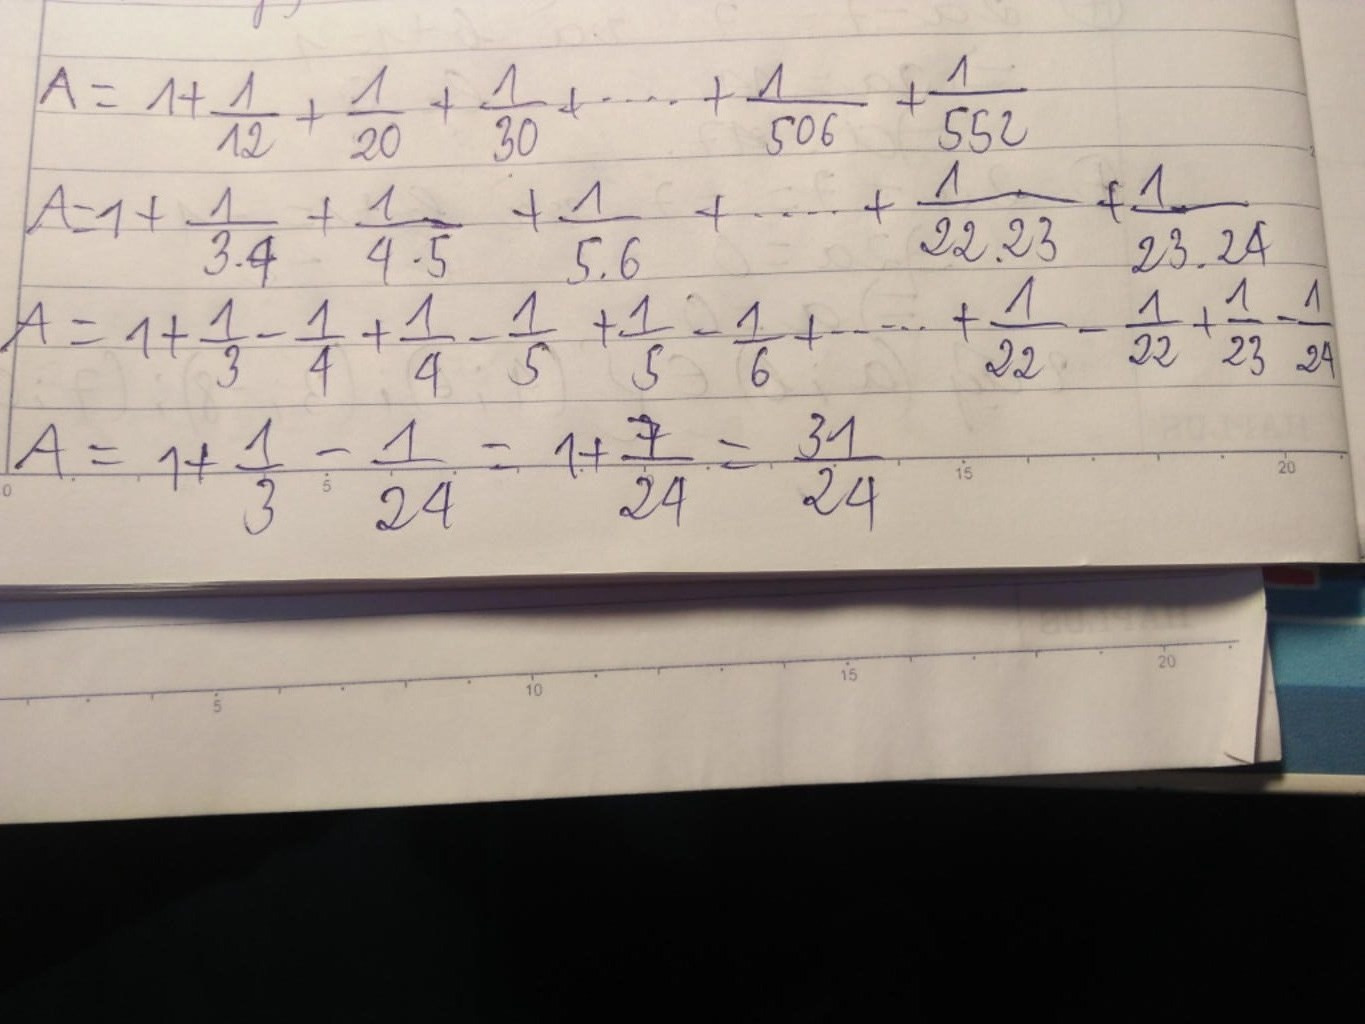 A = 1 + 1/12 + 1/20 + 1/30 + ..... + 1/506 + 1/552
A = 1 + 1/3.4 + 1/4.5 + 1/5.6 + ..... + 1/22.23 + 1/23.24
A = 1 + 1/3 - 1/4 + 1/4 - 1/5 + 1/5 - 1/6 + ..... + 1/22 - 1/22 + 1/23 - 1/24
A = 1 + 1/3 - 1/24 = 1 + 7/24 = 31/24
0 5 15 20
5 10 15 20